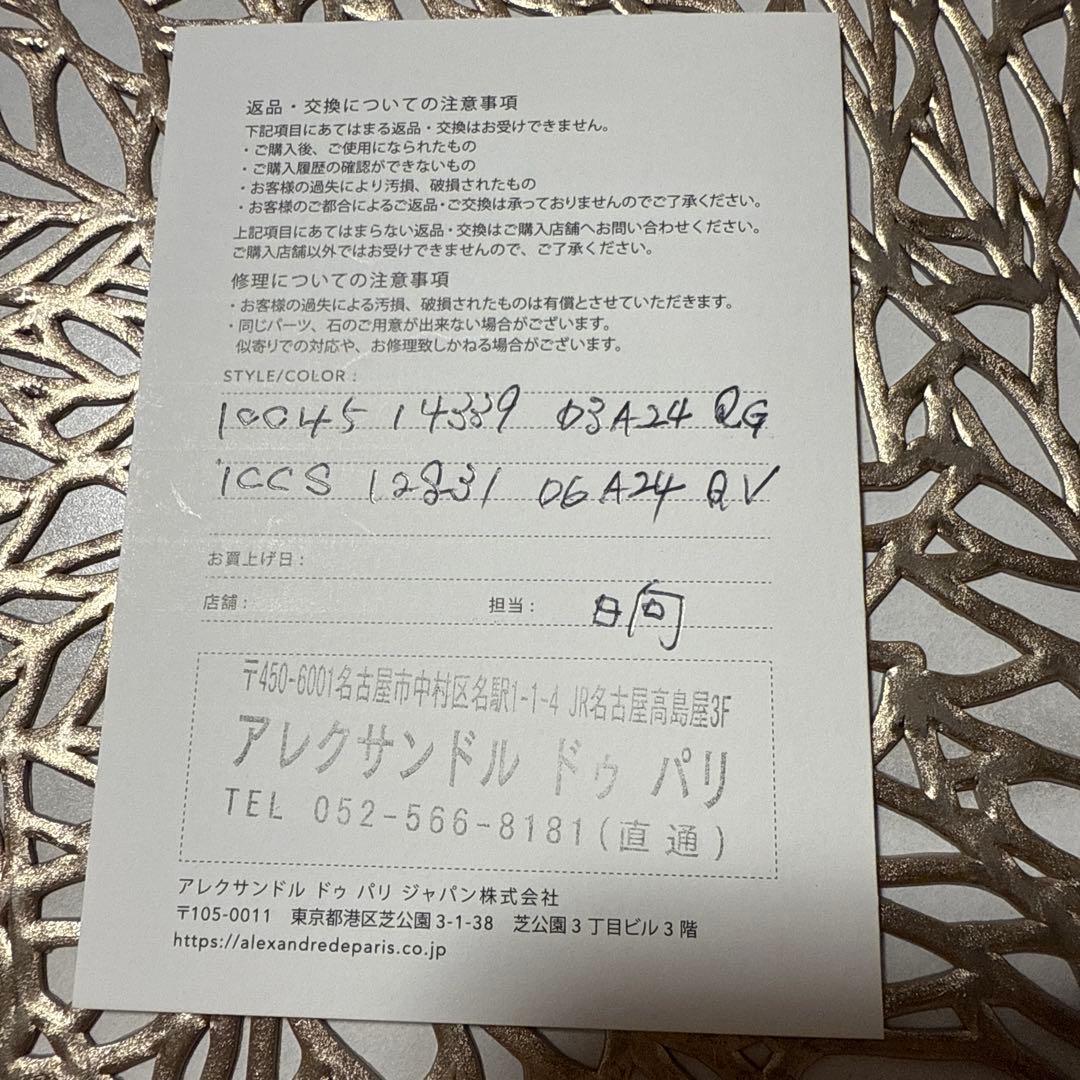 返品・交換についての注意事項
下記項目にあてはまる返品・交換はお受けできません。
・ご購入後、ご使用になられたもの
・ご購入履歴の確認ができないもの
・お客様の過失により汚損、破損されたもの
・お客様のご都合によるご返品・ご交換は承っておりませんのでご了承ください。
上記項目にあてはまらない返品・交換はご購入店舗へお問い合わせください。
ご購入店舗以外ではお受けできませんので、ご了承ください。
修理についての注意事項
・お客様の過失による汚損、破損されたものは有償とさせていただきます。
・同じパーツ、石のご用意が出来ない場合がございます。
似寄りでの対応や、お修理致しかねる場合がございます。
STYLE/COLOR :
10045 14339 03A24 QG
ICCS 12831 06A24 QV
お買上げ日 :
店舗 : 担当 : 日向
〒450-6001名古屋市中村区名駅1-1-4 JR名古屋高島屋3F
アレクサンドル ドゥ パリ
TEL 052-566-8181(直通)
アレクサンドル ドゥ パリ ジャパン株式会社
〒105-0011 東京都港区芝公園3-1-38 芝公園3丁目ビル3階
https://alexandredeparis.co.jp